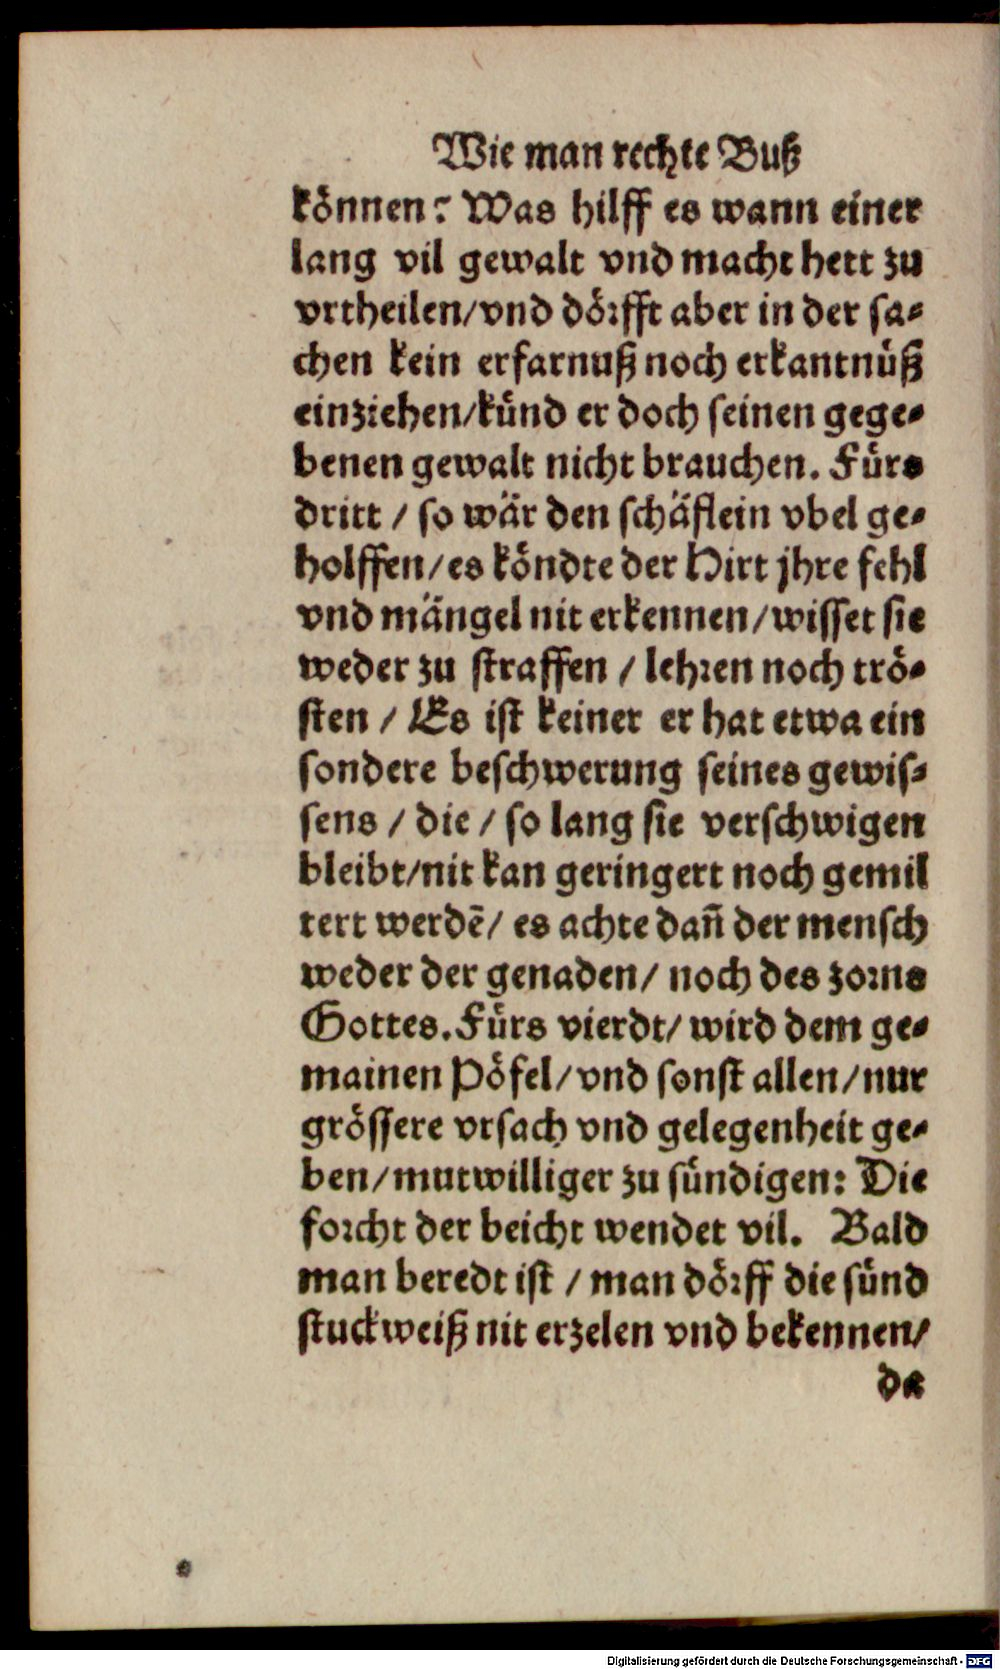 Wie man rechte Buß
können? Was hilff es wann einer
lang vil gewalt vnd macht hett zu
vrtheilen/vnd dörfft aber in der sa-
chen kein erfarnuß noch erkantnüß
einziehen/künd er doch seinen gege-
benen gewalt nicht brauchen. Fürs
dritt / so wär den schäflein vbel ge-
holffen/es köndte der Hirt jhre fehl
vnd mängel nit erkennen/wisset sie
weder zu straffen / lehren noch trö-
sten / Es ist keiner er hat etwa ein
sondere beschwerung seines gewis-
sens / die / so lang sie verschwigen
bleibt/nit kan geringert noch gemil
tert werdē/ es achte dañ der mensch
weder der genaden/ noch des zorns
Gottes. Fürs vierdt/ wird dem ge-
mainen Pöfel/vnd sonst allen/nur
grössere vrsach vnd gelegenheit ge-
ben/mutwilliger zu sündigen: Die
forcht der beicht wendet vil. Bald
man beredt ist / man dörff die sünd
stuckweiß nit erzelen vnd bekennen/
da
Digitalisierung gefördert durch die Deutsche Forschungsgemeinschaft - DFG